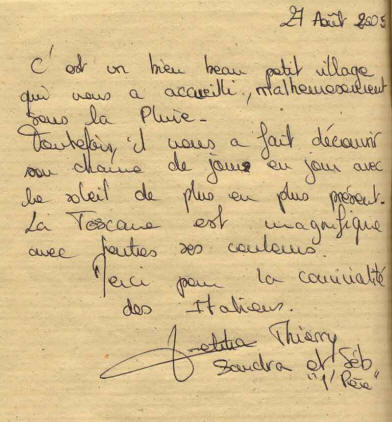 27 Août 2005
C'est un bien beau petit village
qui nous a accueilli, malheureusement
sous la Pluie.
Toutefois, il nous a fait découvrir
son charme de jour en jour avec
le soleil de plus en plus présent.
La Toscane est magnifique
avec toutes ses couleurs.
Merci pour la convivialité
des Italiens.
Laetitia Thierry
Sandra et Séb
"l'Père"